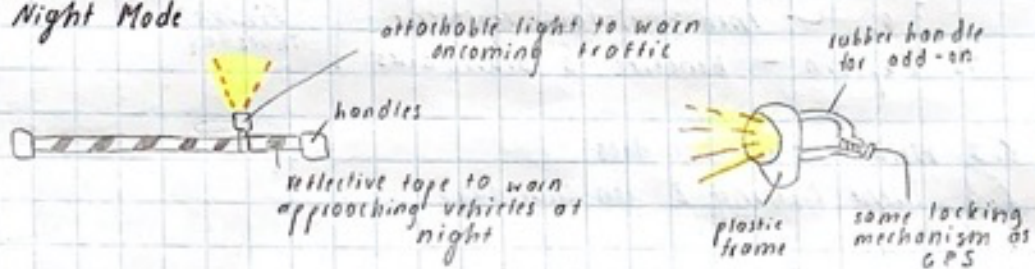 Night Mode
attachable light to warn
oncoming traffic
handles
reflective tape to warn
approaching vehicles at
night
rubber handle
for add-on
plastic
frame
same locking
mechanism as
GPS